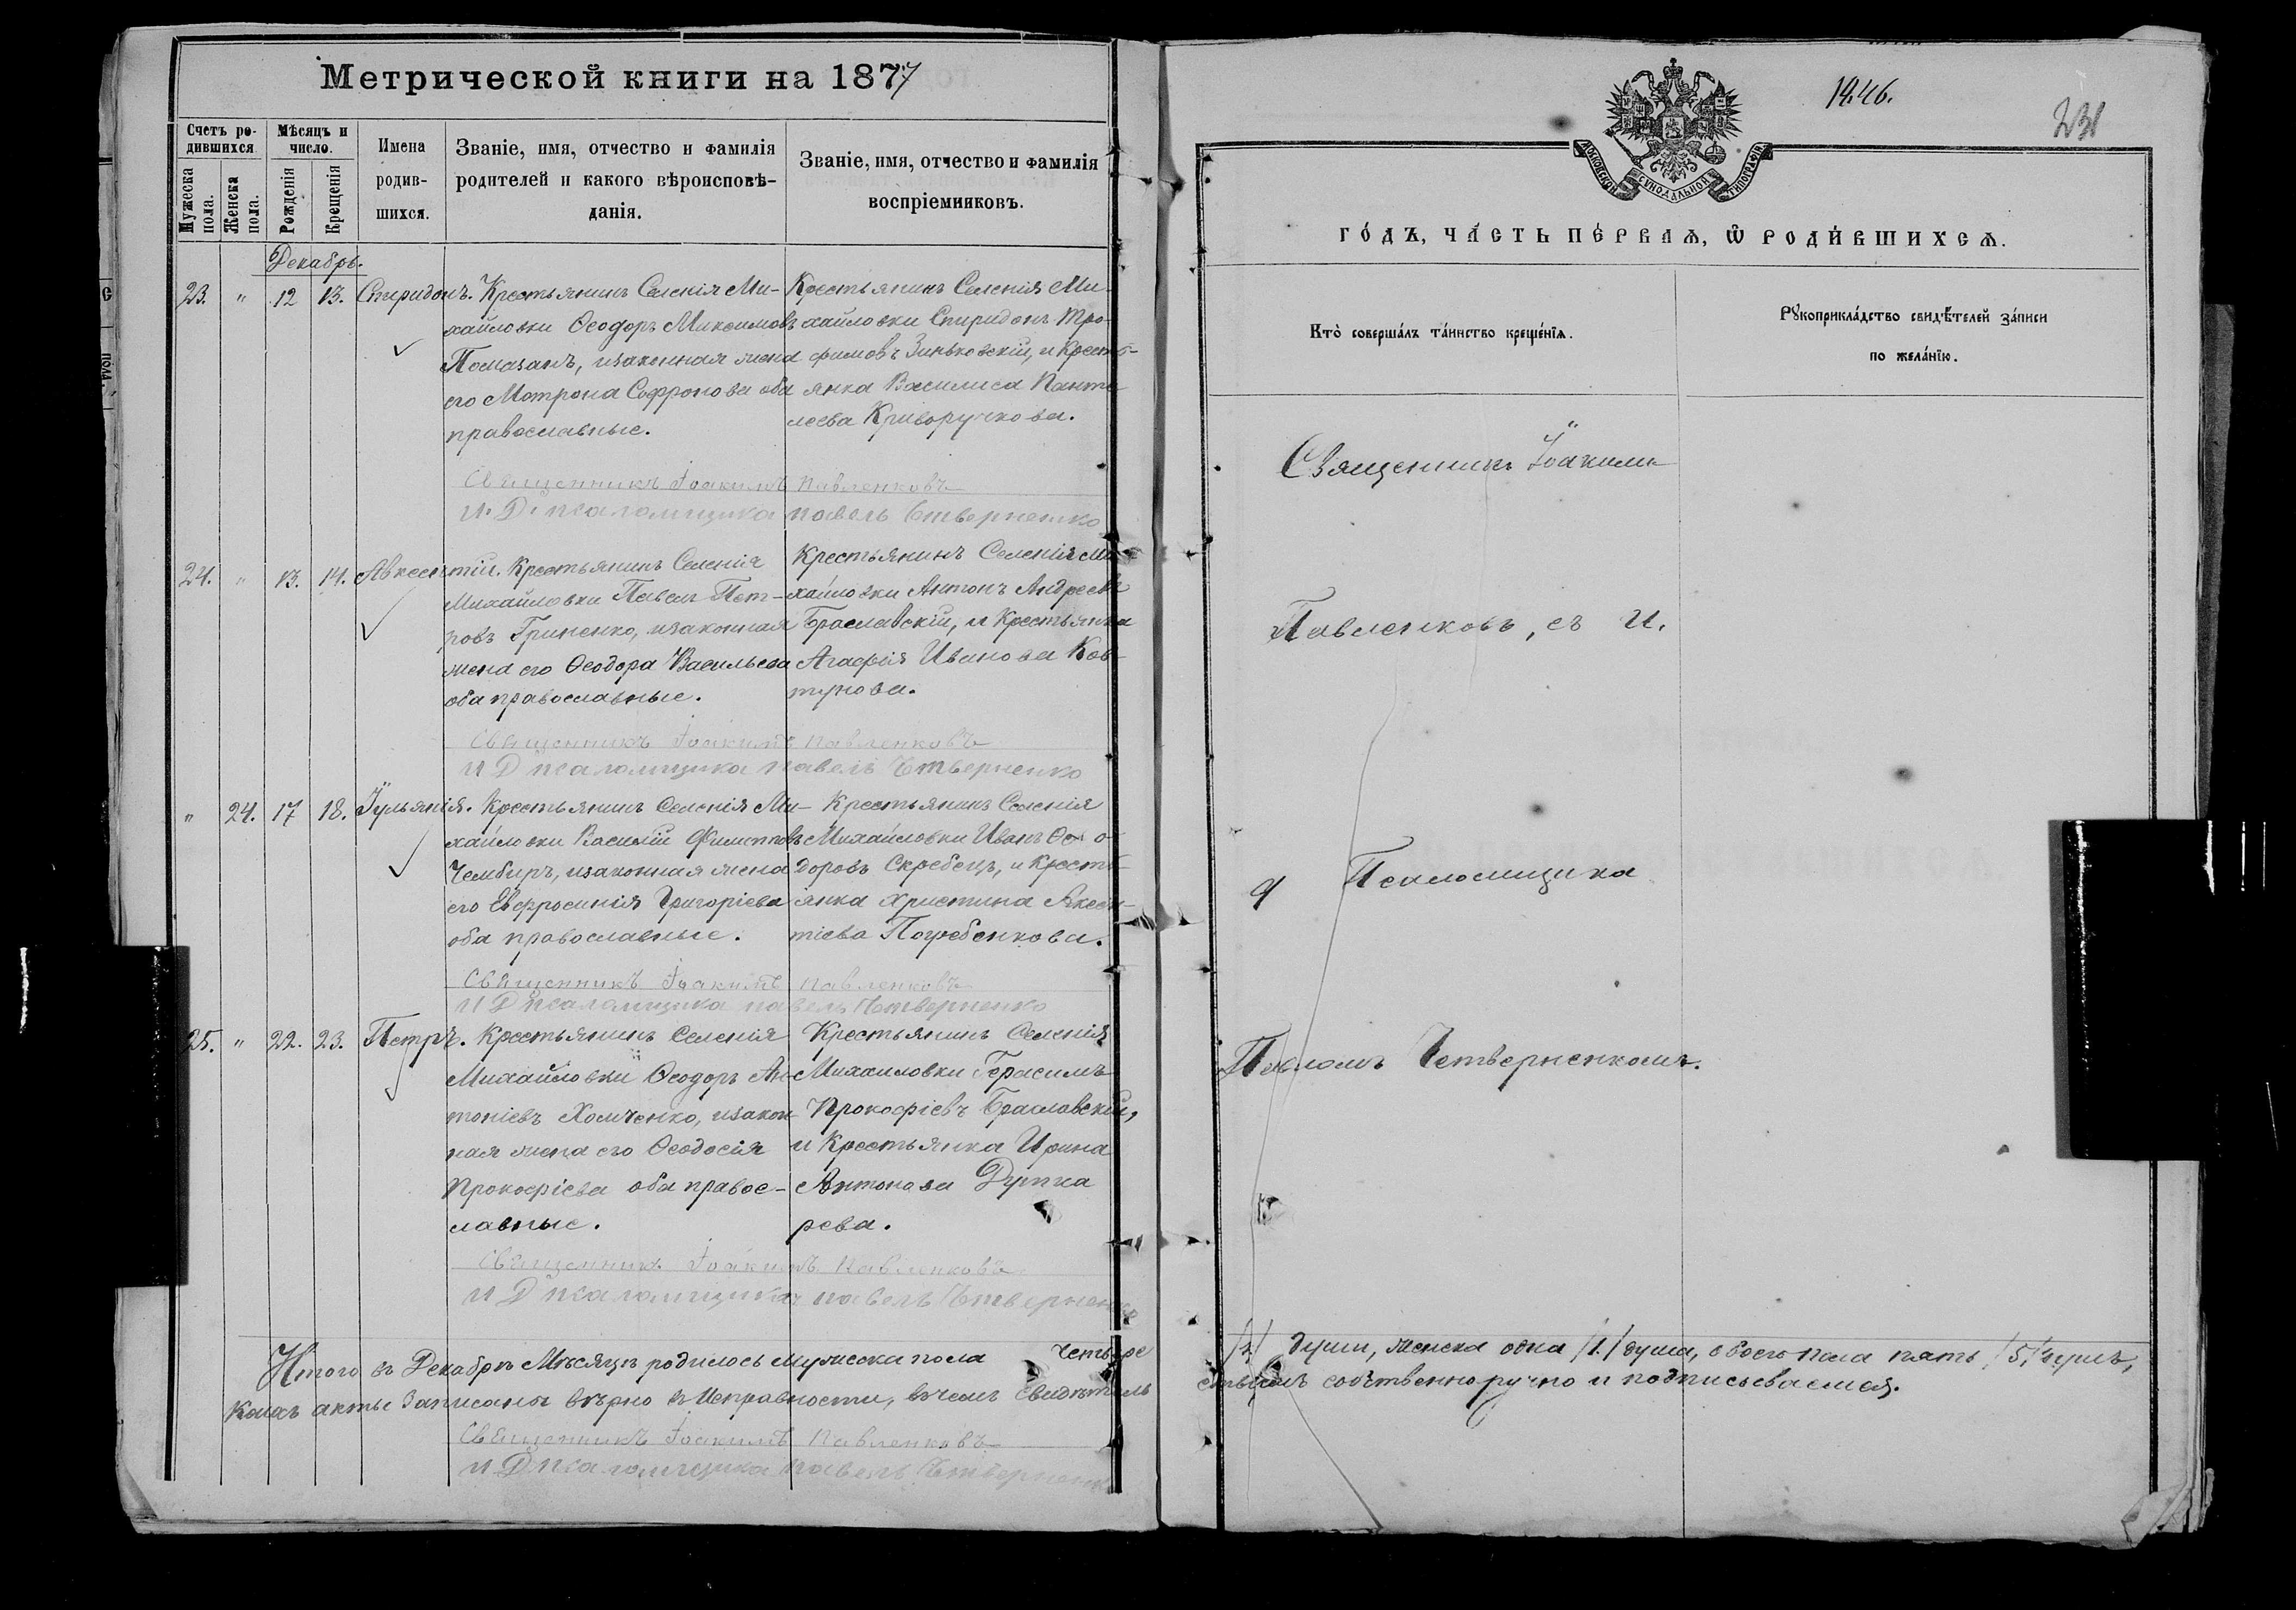 Метрической книги на 1877
Счетъ ро-
дившихся
Мѣсяцъ и
число.
Мужеска
пола.
Женска
пола.
Рожденія
Крещенія
Имена
родив-
шихся.
Званіе, имя, отчество и фамилія
родителей и какого вѣроисповѣ-
данія.
Званіе, имя, отчество и фамилія
воспріемниковъ.
Декабрь.
23. " 12 13. Спиридонъ. Крестьянинъ Селенія Ми-
хайловки Ѳеодоръ Максимовъ
Помазанъ, изаконная жена
его Мотрона Софронова оба
православные.
Крестьянинъ Селенія Ми-
хайловки Спиридонъ Тро-
фимовъ Зиньковскій, и Кресть-
янка Василиса Панте
леева Криворучкова.
Священникъ Іоакимъ Павленковъ
И. Д. псаломщика Павелъ Четверненко
24. " 13. 14. Авксентій. Крестьянинъ Селенія
Михайловки Павелъ Пет-
ровъ Гриненко, изаконная
жена его Ѳеодора Васильева
оба православные.
Крестьянинъ Селенія Ми
хайловки Антонъ Андреевъ
Браславскій, и Крестьянка
Агафія Иванова Ков-
тунова.
Священникъ Іоакимъ Павленковъ
И Д псаломщика Павелъ Четверненко
" 24. 17 18. Іульянія. Крестьянинъ Селенія Ми-
хайловки Василій Филипповъ
Чембиръ, изаконная жена
его Евфросинія Григоріева
оба православные.
Крестьянинъ Селенія
Михайловки Иванъ Ѳео-
доровъ Скребецъ, и Кресть-
янка Христина Авксен-
тіева Погребенкова.
Священникъ Іоакимъ Павленковъ
И Д псаломщика Павелъ Четверненко
25. " 22. 23. Петръ. Крестьянинъ Селенія
Михайловки Ѳеодоръ Ан-
тоніевъ Хомченко, изакон
ная жена его Ѳеодосія
Прокофіева оба правос-
лавные.
Крестьянинъ Селенія
Михаиловки Герасимъ
Прокофіевъ Браславскій,
и Крестьянка Ирина
Антонова
рева.
Священникъ Іоакимъ Павленковъ
И Д псаломщика Павелъ Четверненко
Итого въ Декабрѣ Мѣсяцѣ родилось мужеска пола Четыре
акты Записаны вѣрно в Исправности, вчемъ Свидѣтель
Священникъ Іоакимъ Павленковъ
И Д псаломщика Павелъ Четверненко
1446.
231
МОСКОВСКОЙ СѴНОДАЛЬНОЙ ТИПОГРАФІИ
ГО́ДЪ, ЧА́СТЬ ПЕ́РВАѦ, Ѿ РОДИ́ВШИХСѦ.
Кто̀ соверша́лъ та́инство креще́нїѧ.
Рꙋкоприкла́дство свидѣ́телей за́писи
по жела́нїю.
Священникъ Іоакимъ
Павленковъ, съ И.
Д Псаломщика
Павломъ Четверненкомъ.
души, женска одна /1./ душа, обоего пола пять /5/ душъ,
ствуемъ собственноручно и подписываемся.